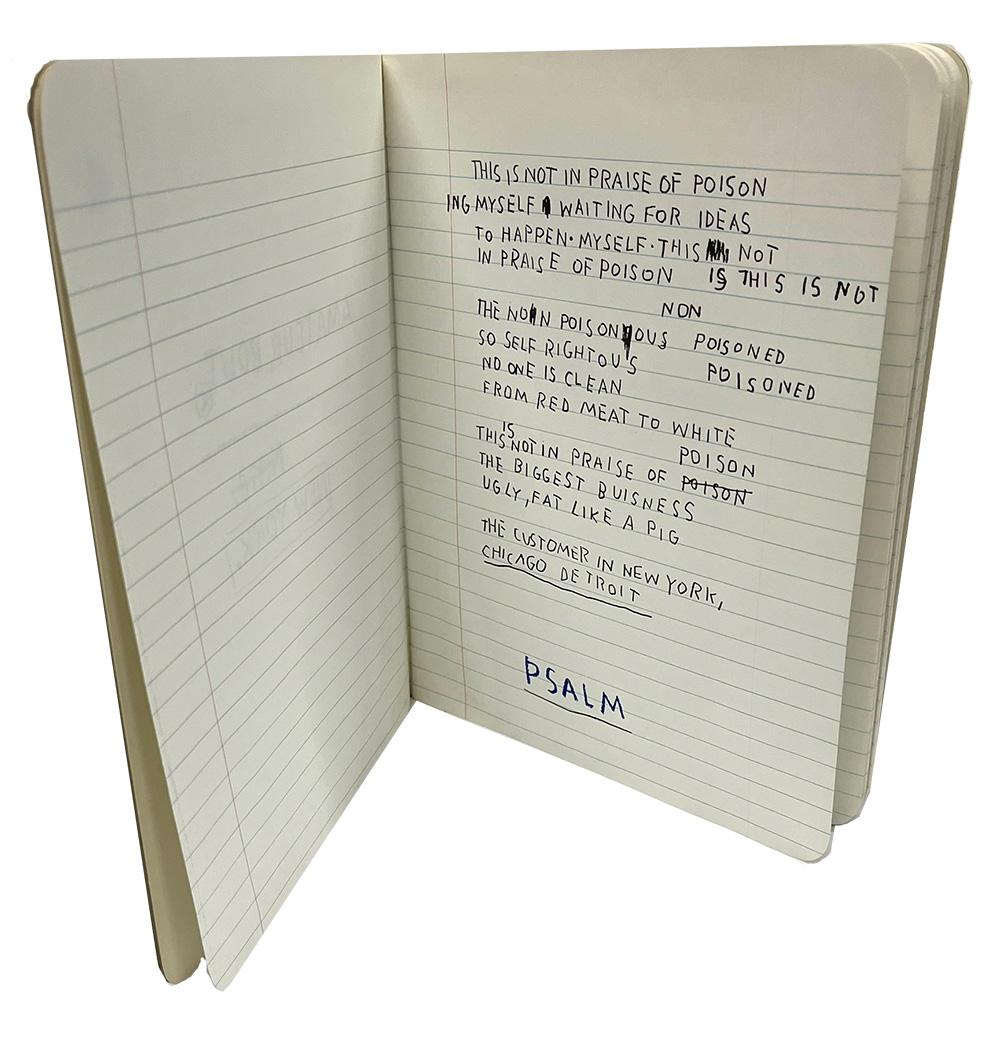 THIS IS NOT IN PRAISE OF POISON
ING MYSELF WAITING FOR IDEAS
TO HAPPEN · MYSELF · THIS NOT
IN PRAISE OF POISON IS THIS IS NOT
NON
THE NON POISONOUS POISONED
SO SELF RIGHTOUS POISONED
NO ONE IS CLEAN
FROM RED MEAT TO WHITE
POISON
THIS IS NOT IN PRAISE OF POISON
THE BIGGEST BUISNESS
UGLY, FAT LIKE A PIG
THE CUSTOMER IN NEW YORK,
CHICAGO DETROIT
PSALM